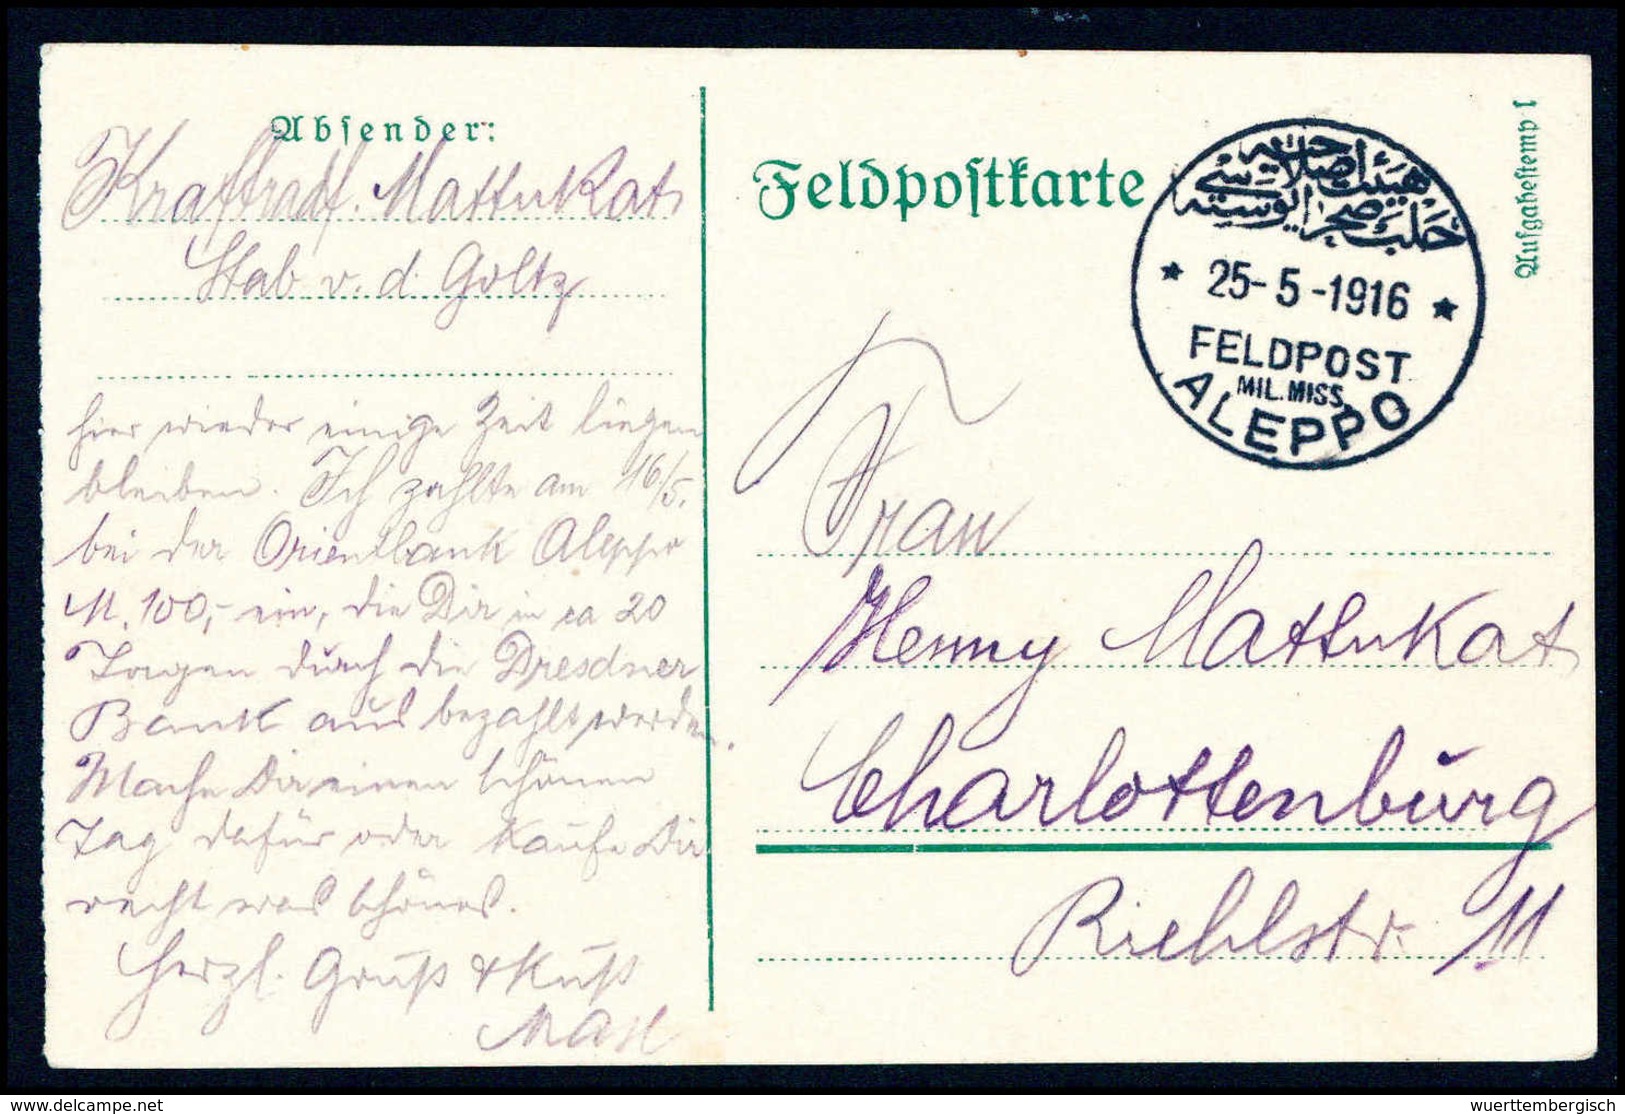 Absender:
Kraftradf. Mattukat
Stab v. d. Goltz
hier wieder einige Zeit liegen
bleiben. Ich zahlte am 16/5.
bei der Orientbank Aleppo
M. 100,- ein, die Dir in ca 20
Tagen durch die Dresdner
Bank aus bezahlt werden.
Mache Dir einen schönen
Tag dafür oder kaufe Dir
recht was schönes.
Herzl. Gruß & Kuß
Feldpostkarte
Aufgabestemp l
25-5-1916
FELDPOST
MIL. MISS.
ALEPPO
Frau
Henny Mattukat
Charlottenburg
Riehlstr. 11
delcampe.net
wuerttembergisch